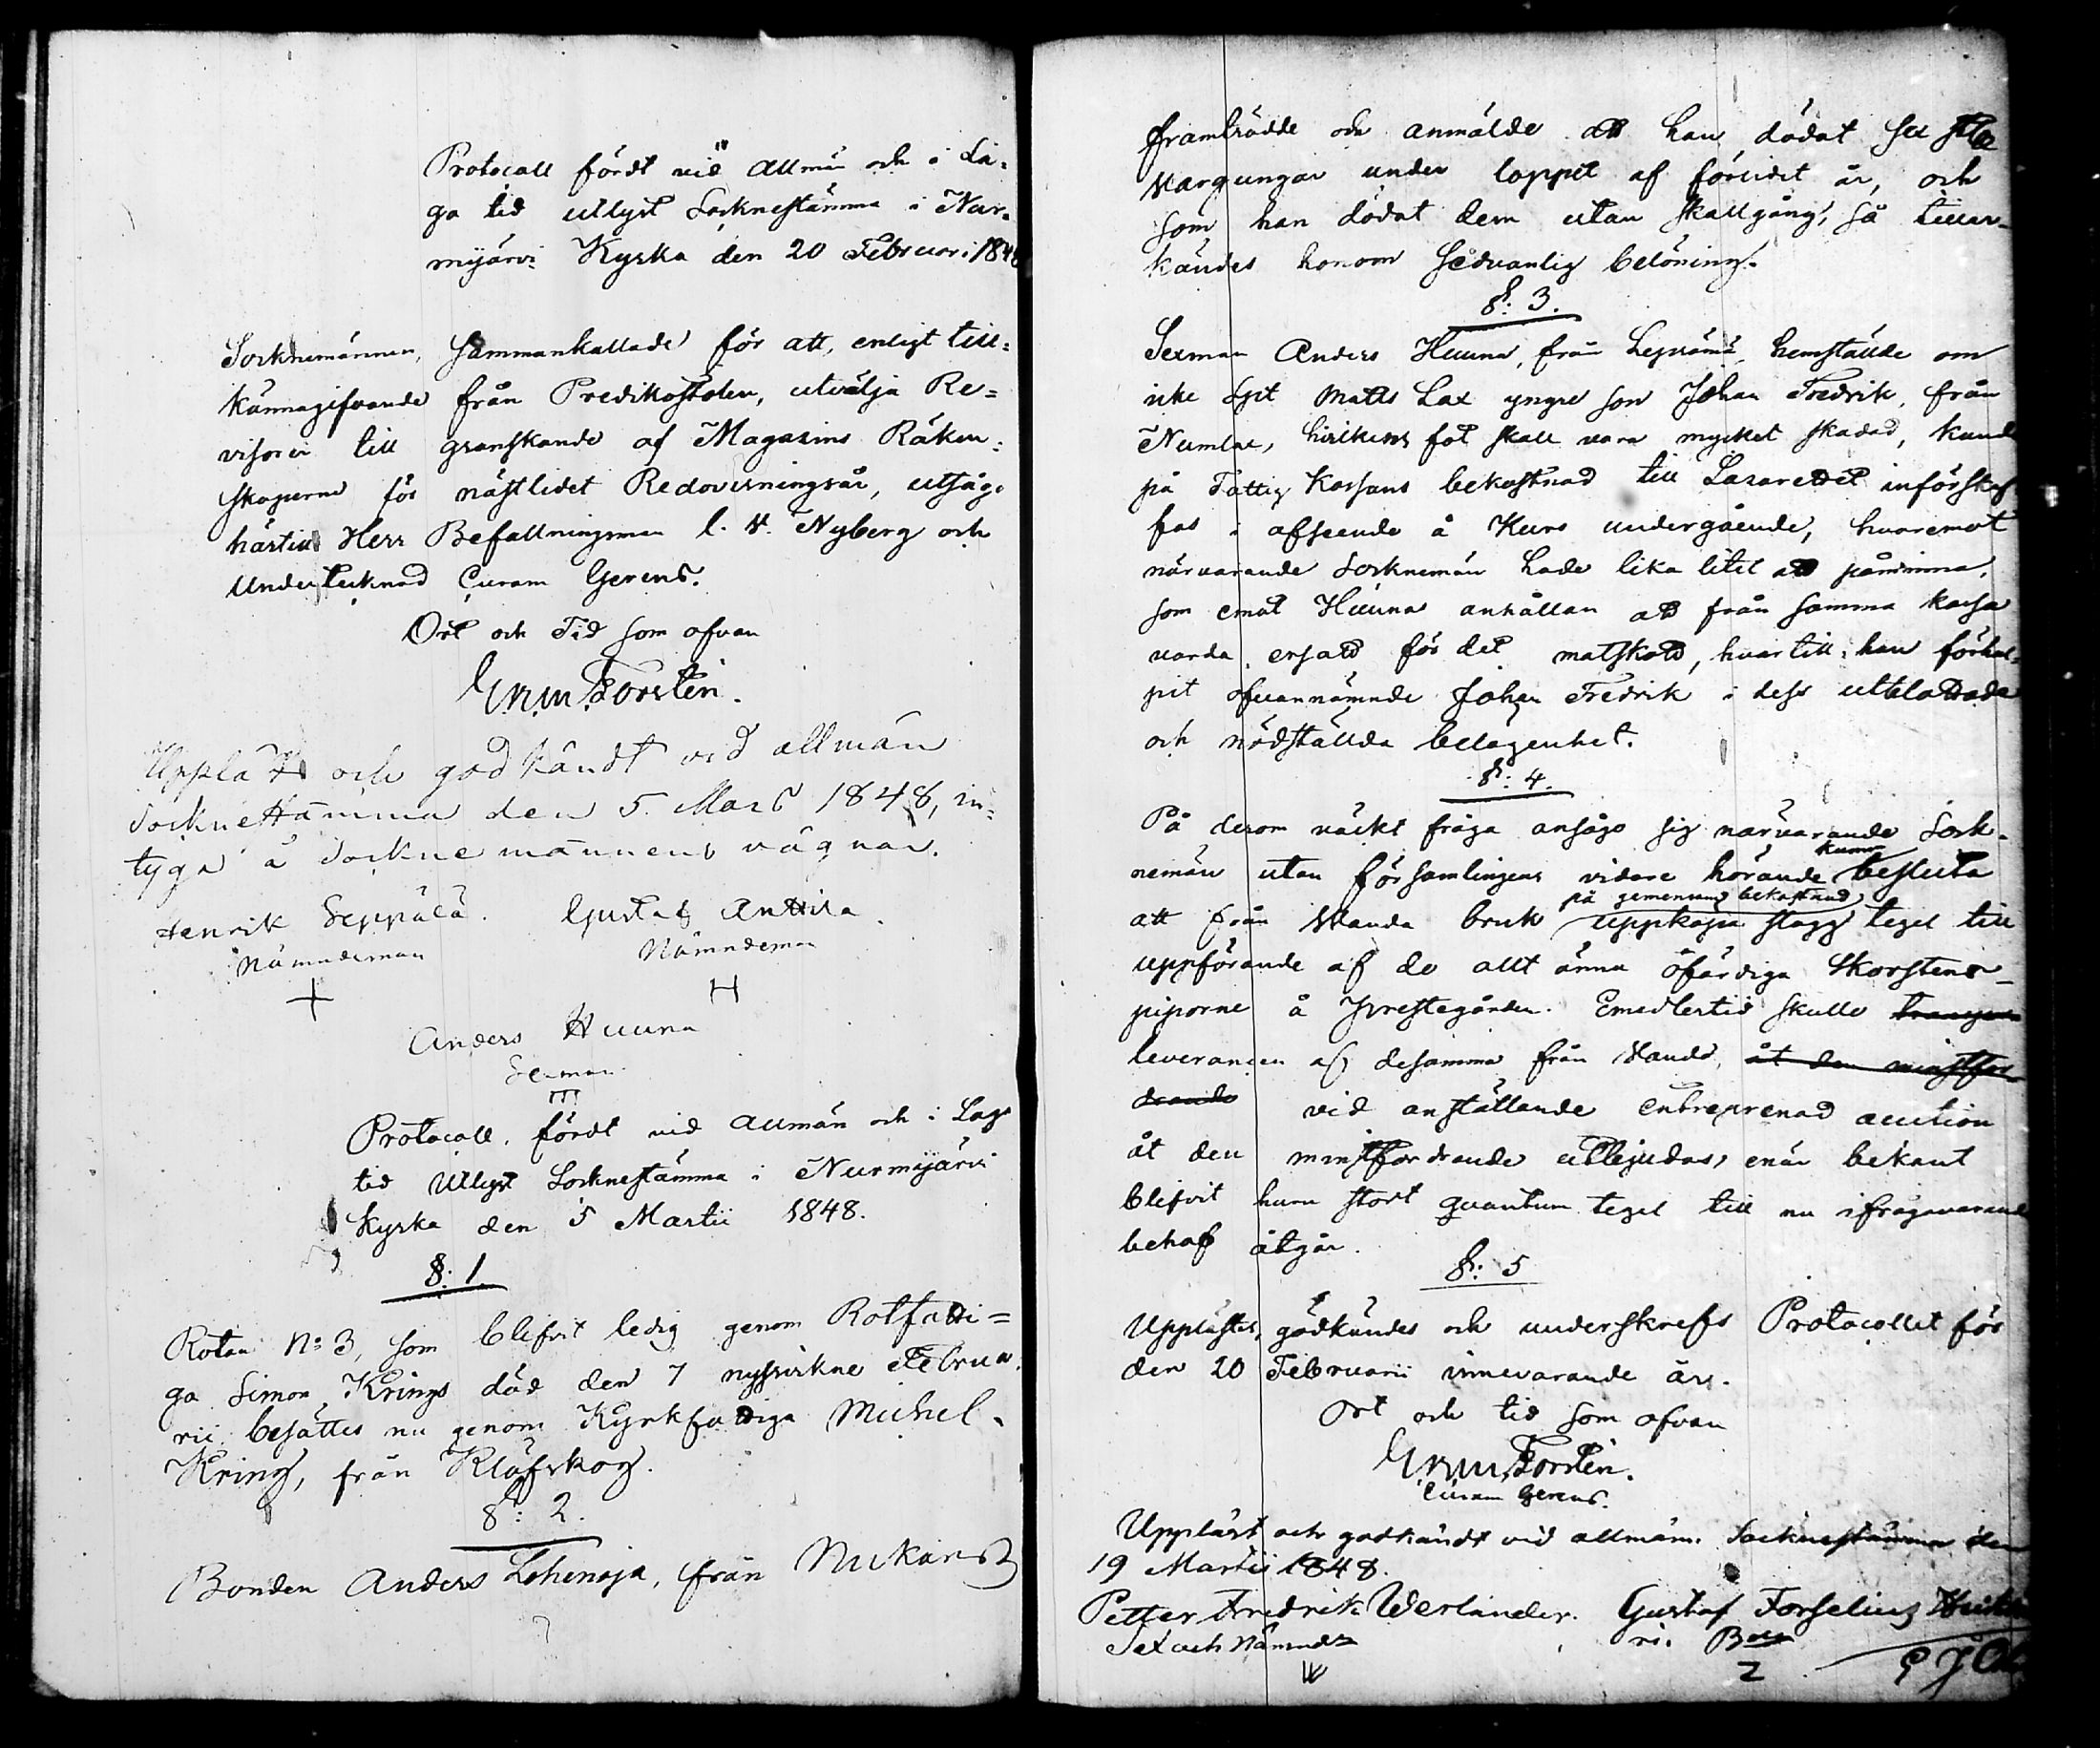 Protocoll fördt vid allmän och i La-
ga tid utlyst Socknestämma i Nur-
mijärvi Kyrka den 20 Februari 1848
Socknemännen, sammankallade för att, enligt till-
kännagifvande från Predikostolen, utvälja Re-
visorer till granskande af Magasins Räken-
skaperne för nästlidet Redovisningsår, utsågo
härtill Herr Befallningsman C. V. Nyberg och
Undertecknad Curam Gerens.
Ort och Tid som ofvan
Forstén.
Uppläst och godkändt vid allmän
Socknestämma den 5 Mars 1848, in-
tyga å Socknemännens vägnar.
Henrik Seppälä. Gustaf Anttila.
Nämndeman Nämndeman
Anders Huuna
Sexman
Protocoll, fördt vid allmän och i Laga
tid utlyst Socknestämma i Nurmijärvi
Kyrka den 5 Martii 1848.
§: 1.
Rotan N:o 3, som blifvit ledig genom Rotfatti-
ga Simon Krings död den 7 nyssvikne Februa-
rii besattes nu genom Kyrkfattiga Michel
Kring, från Klöfskog.
§: 2.
Bonden Anders Lohenoja, från Nukari
framträdde och anmälde att han dödat sex st:n
Vargungar under loppet af förlidit år, och
som han dödat dem utan skallgång, så tiller-
kändes honom sedvanlig belöning.
§: 3.
Sexman Anders Huuna, från Lepsämä, hemställde om
icke Spt Matts Lax yngre son Johan Fredrik, från
Numlax, hvilkens fot skall vara mycket skadad, kunde
på Fattig Kassans bekostnad till Lazarettet införskaf-
fas i afseende å Kurs undergående, hvaremot
närvarande Socknemän hade lika litet att påminna,
som emot Huuna anhållan att från samma kassa
varda ersatt för det matskott, hvartill han förhul-
pit ofvannämnde Johan Fredrik i dess utblottade
och nödställda belägenhet.
§: 4.
På derom väckt fråga ansågo sig närvarande Sock-
kunna
nemän utan församlingens vidare hörande besluta
på gemensam bekostnad
att från Wanda bruk uppköpa slagg tegel till
uppförande af de allt ännu ofärdiga Skorstens-
piporne å Prestegården. Emedlertid skulle
leverancen af desamma från Wanda, åt den minstfor-
drande vid anställande entreprenad auction
åt den minstfordrande utbjudas, enär bekant
blifvit huru stort quantum tegel till nu ifrågavarande
behof åtgår.
§: 5
Upplästes, godkändes och underskrefs Protocollet för
den 20 Februarii innevarande år.
Ort och tid som ofvan
Forstén.
Curam Gerens.
Uppläst och godkändt vid allmän Socknestämma den
19 Martii 1848.
Petter Fredrik Werlander. Gustaf Forselius
Sex och Nämnd